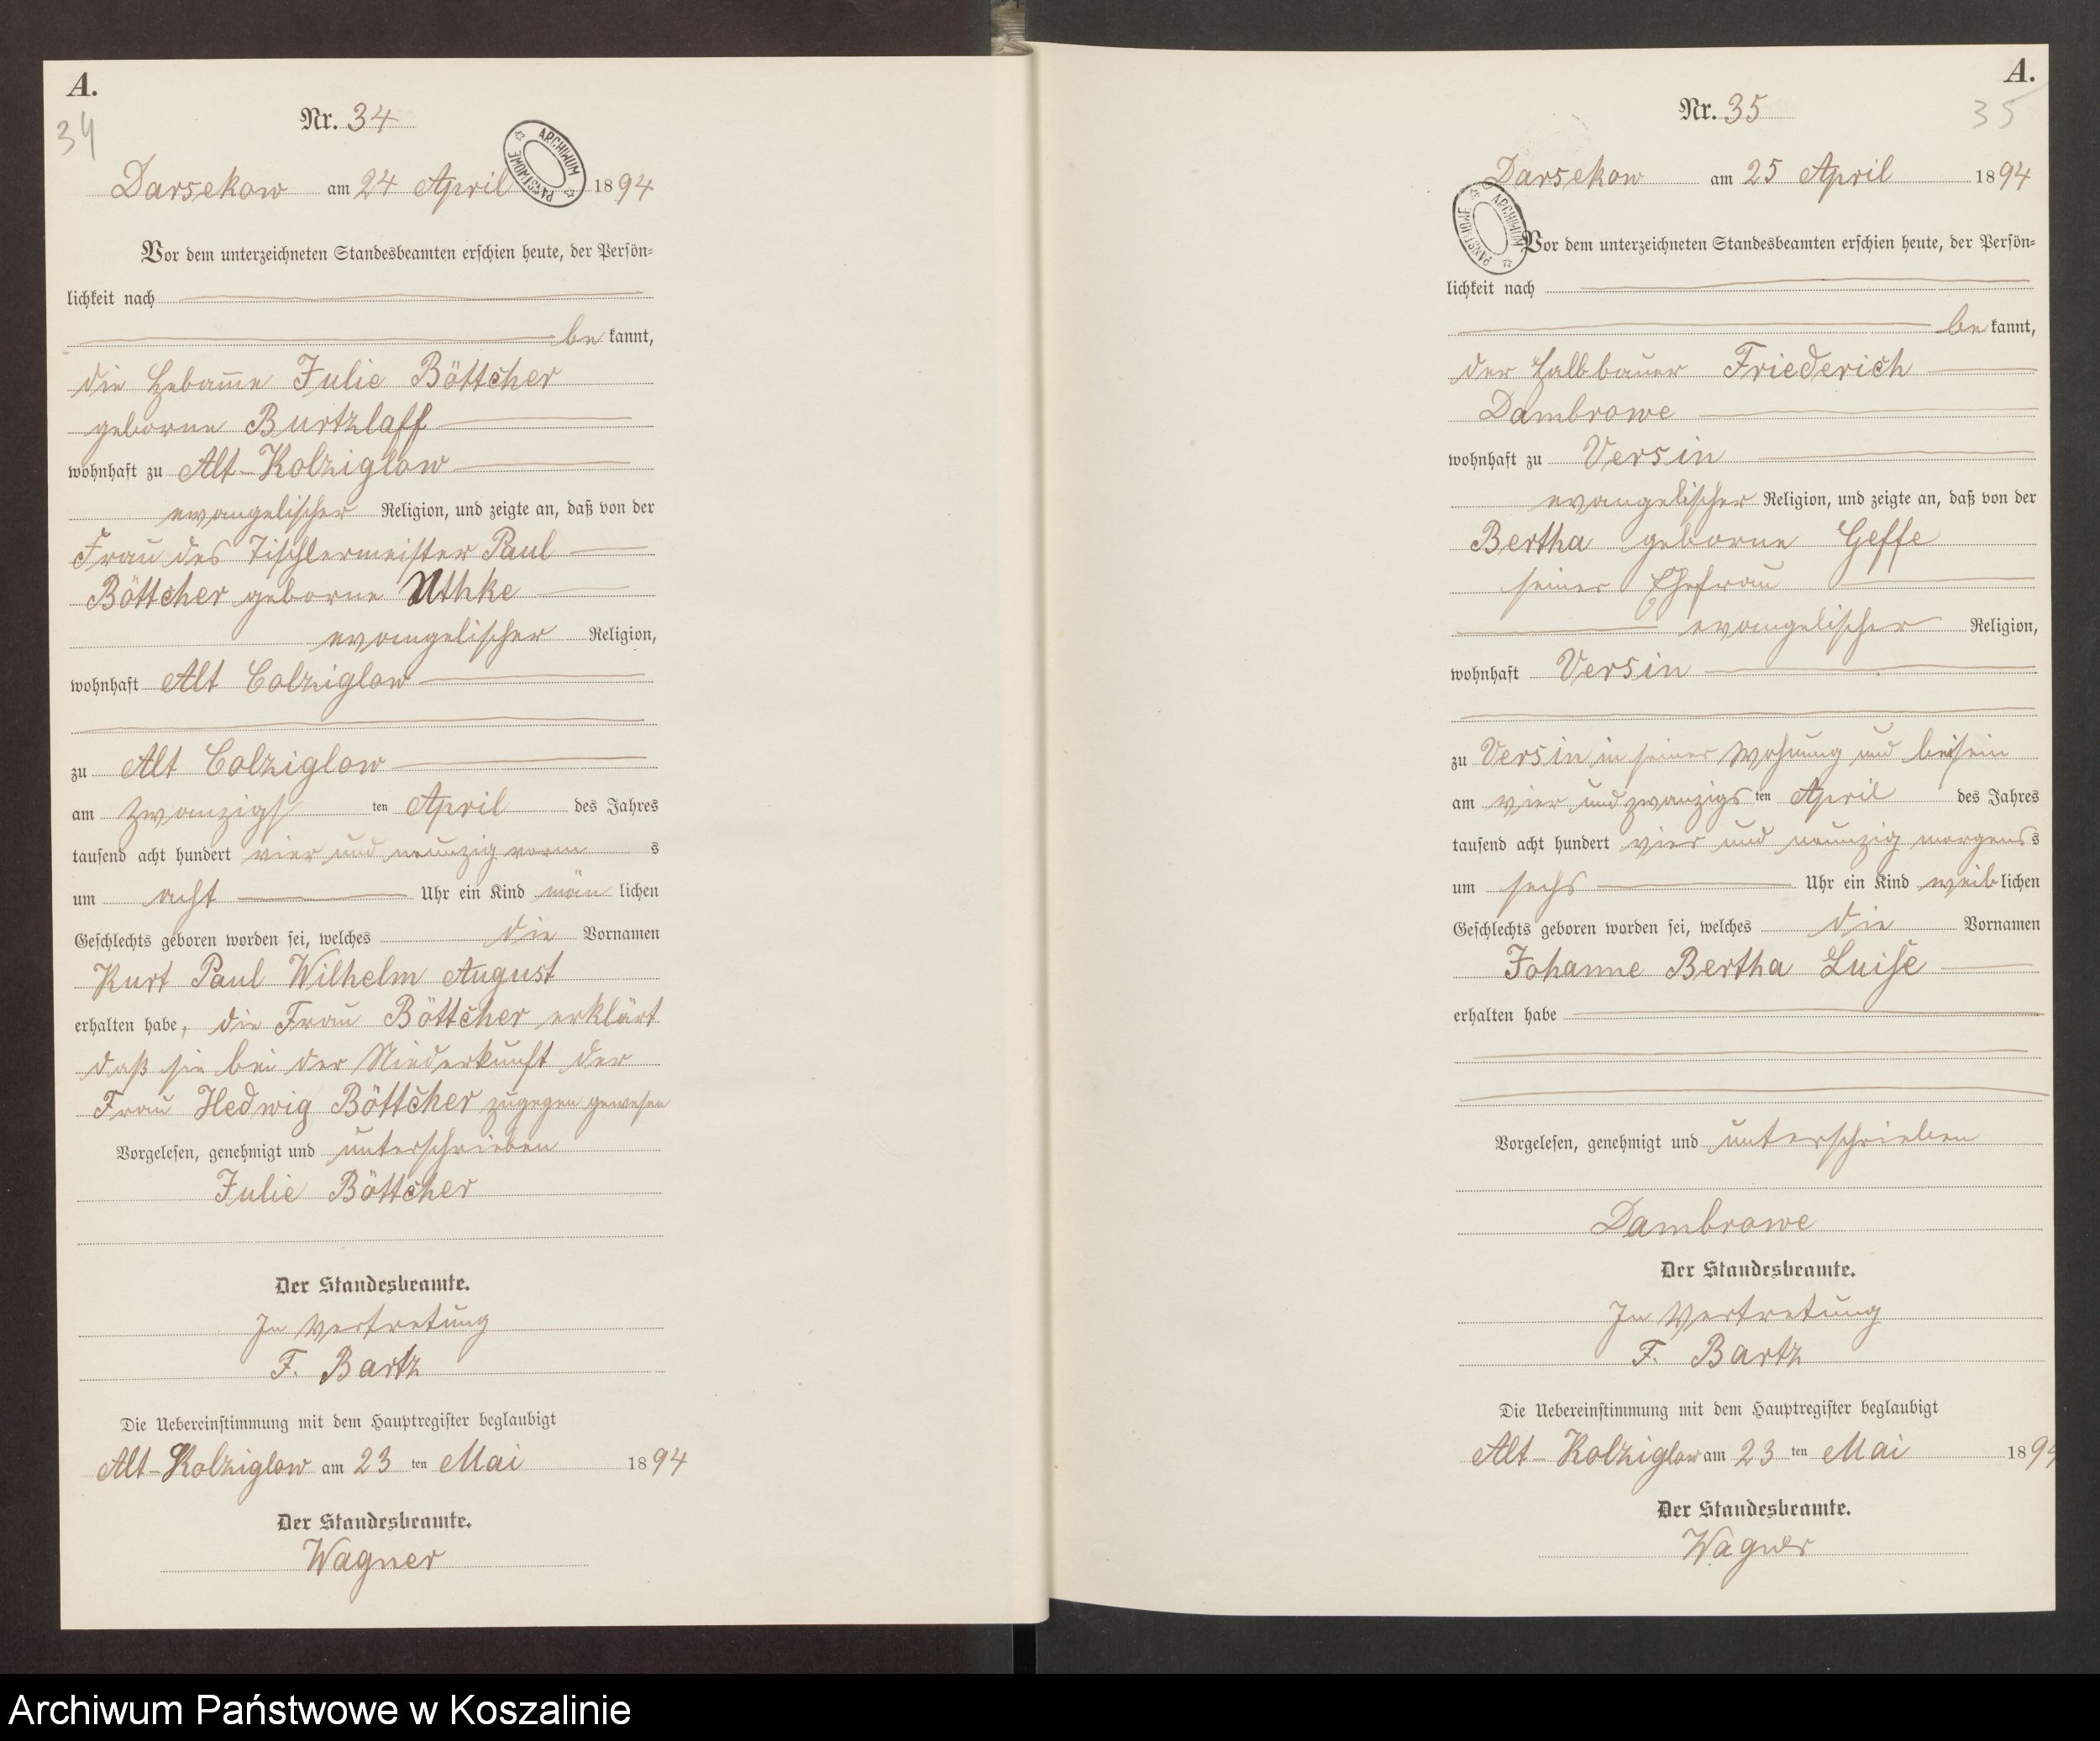 A.
34
Nr. 34
ARCHIWUM PAŃSTWOWE
Darsekow am 24 April 1894
Vor dem unterzeichneten Standesbeamten erschien heute, der Persön-
lichkeit nach
be kannt,
die Hebam̅e Julie Böttcher
geborne Burtzlaff
wohnhaft zu Alt-Kolziglow
evangelischer Religion, und zeigte an, daß von der
Frau des Tischlermeister Paul
Böttcher geborne Uthke
evangelischer Religion,
wohnhaft Alt Colziglow
zu Alt Colziglow
am zwanzigs ten April des Jahres
tausend acht hundert vier und neunzig vorm s
um acht Uhr ein Kind män lichen
Geschlechts geboren worden sei, welches die Vornamen
Kurt Paul Wilhelm August
erhalten habe, die Frau Böttcher erklärt
daß sie bei der Niederkunft der
Frau Hedwig Böttcher zugegen gewesen
Vorgelesen, genehmigt und unterschrieben
Julie Böttcher
Der Standesbeamte.
In Vertretung
F. Bartz
Die Uebereinstimmung mit dem Hauptregister beglaubigt
Alt-Kolziglow am 23 ten Mai 1894
Der Standesbeamte.
Wagner
A.
35
Nr. 35
Darsekow am 25 April 1894
ARCHIWUM PAŃSTWOWE
Vor dem unterzeichneten Standesbeamten erschien heute, der Persön-
lichkeit nach
be kannt,
der Halbbauer Friederich
Dambrowe
wohnhaft zu Versin
evangelischer Religion, und zeigte an, daß von der
Bertha geborne Geffe
seiner Ehefrau
evangelischer Religion,
wohnhaft Versin
zu Versin in seiner Wohnung und beisein
am vier und zwanzigs ten April des Jahres
tausend acht hundert vier und neunzig morgens s
um sechs Uhr ein Kind weib lichen
Geschlechts geboren worden sei, welches die Vornamen
Johanne Bertha Luise
erhalten habe
Vorgelesen, genehmigt und unterschrieben
Dambrowe
Der Standesbeamte.
In Vertretung
F. Bartz
Die Uebereinstimmung mit dem Hauptregister beglaubigt
Alt-Kolziglow am 23 ten Mai 1894
Der Standesbeamte.
Wagner
Archiwum Państwowe w Koszalinie